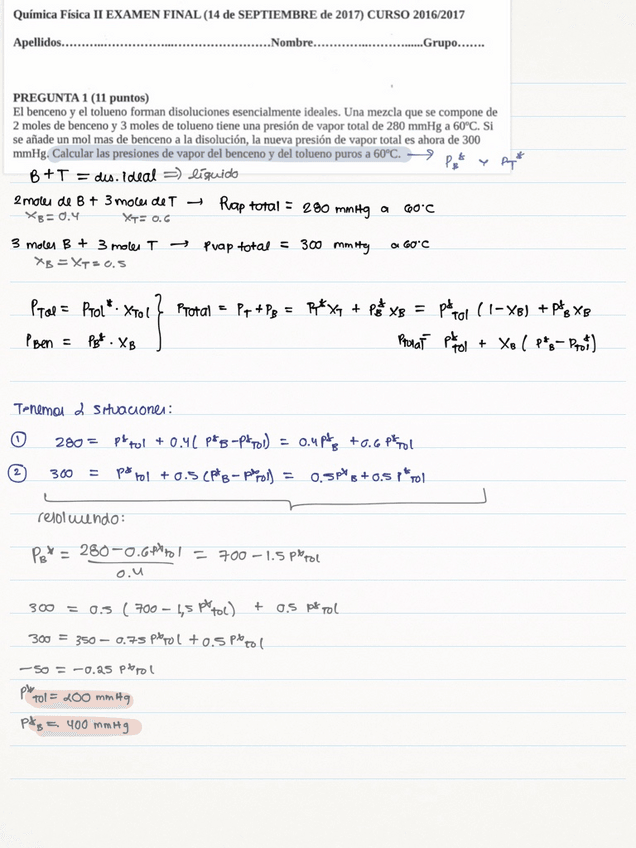 Química Física II EXAMEN FINAL (14 de SEPTIEMBRE de 2017) CURSO 2016/2017
Apellidos……………………………………………Nombre……………………Grupo…….
PREGUNTA 1 (11 puntos)
El benceno y el tolueno forman disoluciones esencialmente ideales. Una mezcla que se compone de
2 moles de benceno y 3 moles de tolueno tiene una presión de vapor total de 280 mmHg a 60ºC. Si
se añade un mol mas de benceno a la disolución, la nueva presión de vapor total es ahora de 300
mmHg. Calcular las presiones de vapor del benceno y del tolueno puros a 60ºC. → P_B* y P_T*
B + T = dis. Ideal ⇒ líquido
2 moles de B + 3 moles de T → Pvap total = 280 mmHg a 60°C
X_B = 0.4 X_T = 0.6
3 moles B + 3 moles T → Pvap total = 300 mmHg a 60°C
X_B = X_T = 0.5
P_Tol = P_Tol* · X_Tol } P_Total = P_T + P_B = P_T* X_T + P_B* X_B = P*_Tol (1 - X_B) + P*_B X_B
P_Ben = P_B* · X_B P_Total = P*_Tol + X_B (P*_B - P_Tol*)
Tenemos 2 situaciones:
① 280 = P*_Tol + 0.4 (P*_B - P*_Tol) = 0.4 P*_B + 0.6 P*_Tol
② 300 = P*_Tol + 0.5 (P*_B - P*_Tol) = 0.5 P*_B + 0.5 P*_Tol
resolviendo:
P_B* = (280 - 0.6 P*_Tol) / 0.4 = 700 - 1.5 P*_Tol
300 = 0.5 (700 - 1,5 P*_Tol) + 0.5 P*_Tol
300 = 350 - 0.75 P*_Tol + 0.5 P*_Tol
-50 = -0.25 P*_Tol
P*_Tol = 200 mmHg
P*_B = 400 mmHg